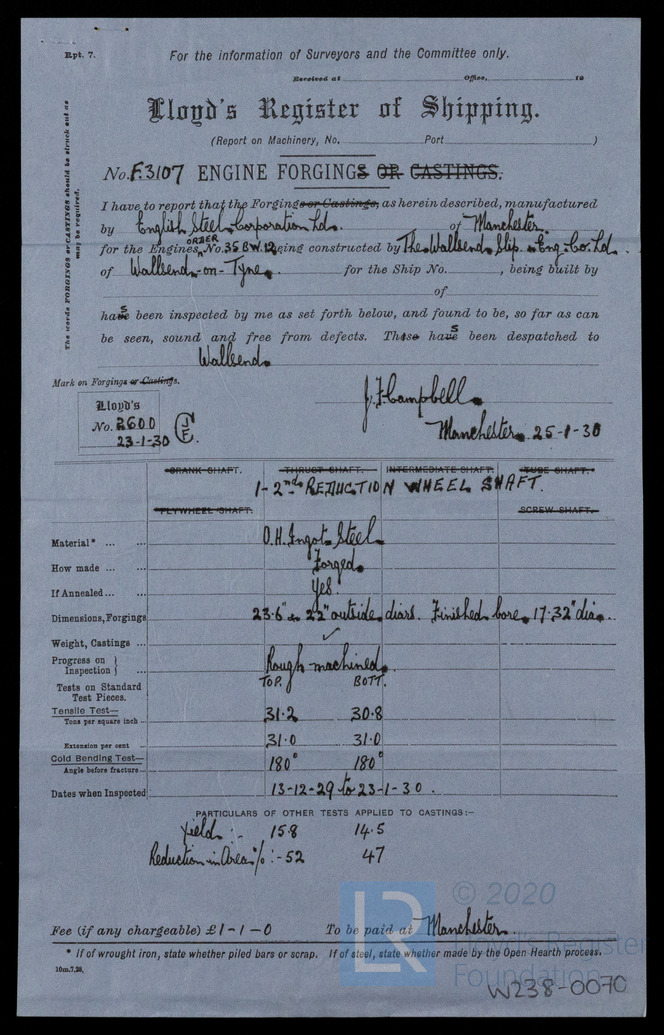 Rpt. 7.
For the information of Surveyors and the Committee only.
Received at Office, 19
Lloyd's Register of Shipping.
(Report on Machinery, No. Port )
The words FORGINGS or CASTINGS should be struck out as may be required.
No. F.3107 ENGINE FORGINGS OR CASTINGS.
I have to report that the Forgings or Castings, as herein described, manufactured
by English Steel Corporation Ld. of Manchester.
for the Engines, ORDER No. 35 B.W.12 being constructed by The Wallsend Slip & Eng. Co. Ld.
of Wallsend-on-Tyne. for the Ship No. , being built by
of
have s been inspected by me as set forth below, and found to be, so far as can
be seen, sound and free from defects. These have s been despatched to
Wallsend.
Mark on Forgings or Castings.
Lloyd's
No. 2600
23-1-30
J.F. Campbell.
Manchester. 25-1-30
CRANK SHAFT. THRUST SHAFT. INTERMEDIATE SHAFT. TUBE SHAFT.
1-2nd REDUCTION WHEEL SHAFT.
FLYWHEEL SHAFT. SCREW SHAFT.
Material* ... ... O.H. Ingot Steel
How made ... ... Forged
If Annealed ... ... Yes.
Dimensions, Forgings 23.6" & 22" outside diars. Finished bore 17.32" dia.
Weight, Castings ... ✓
Progress on Inspection } ... Rough machined.
Tests on Standard Test Pieces. TOP. BOTT.
Tensile Test—
Tons per square inch ... 31.2 30.8
Extension per cent ... 31.0 31.0
Cold Bending Test—
Angle before fracture... 180° 180°
Dates when Inspected 13-12-29 to 23-1-30.
PARTICULARS OF OTHER TESTS APPLIED TO CASTINGS:—
Yield :- 15.8 14.5
Reduction in Area % :- 52 47
Fee (if any chargeable) £1-1-0 To be paid at Manchester.
* If of wrought iron, state whether piled bars or scrap. If of steel, state whether made by the Open Hearth process.
10m,7,28.
LR
© 2020
Lloyd's Register
Foundation
W238-0070